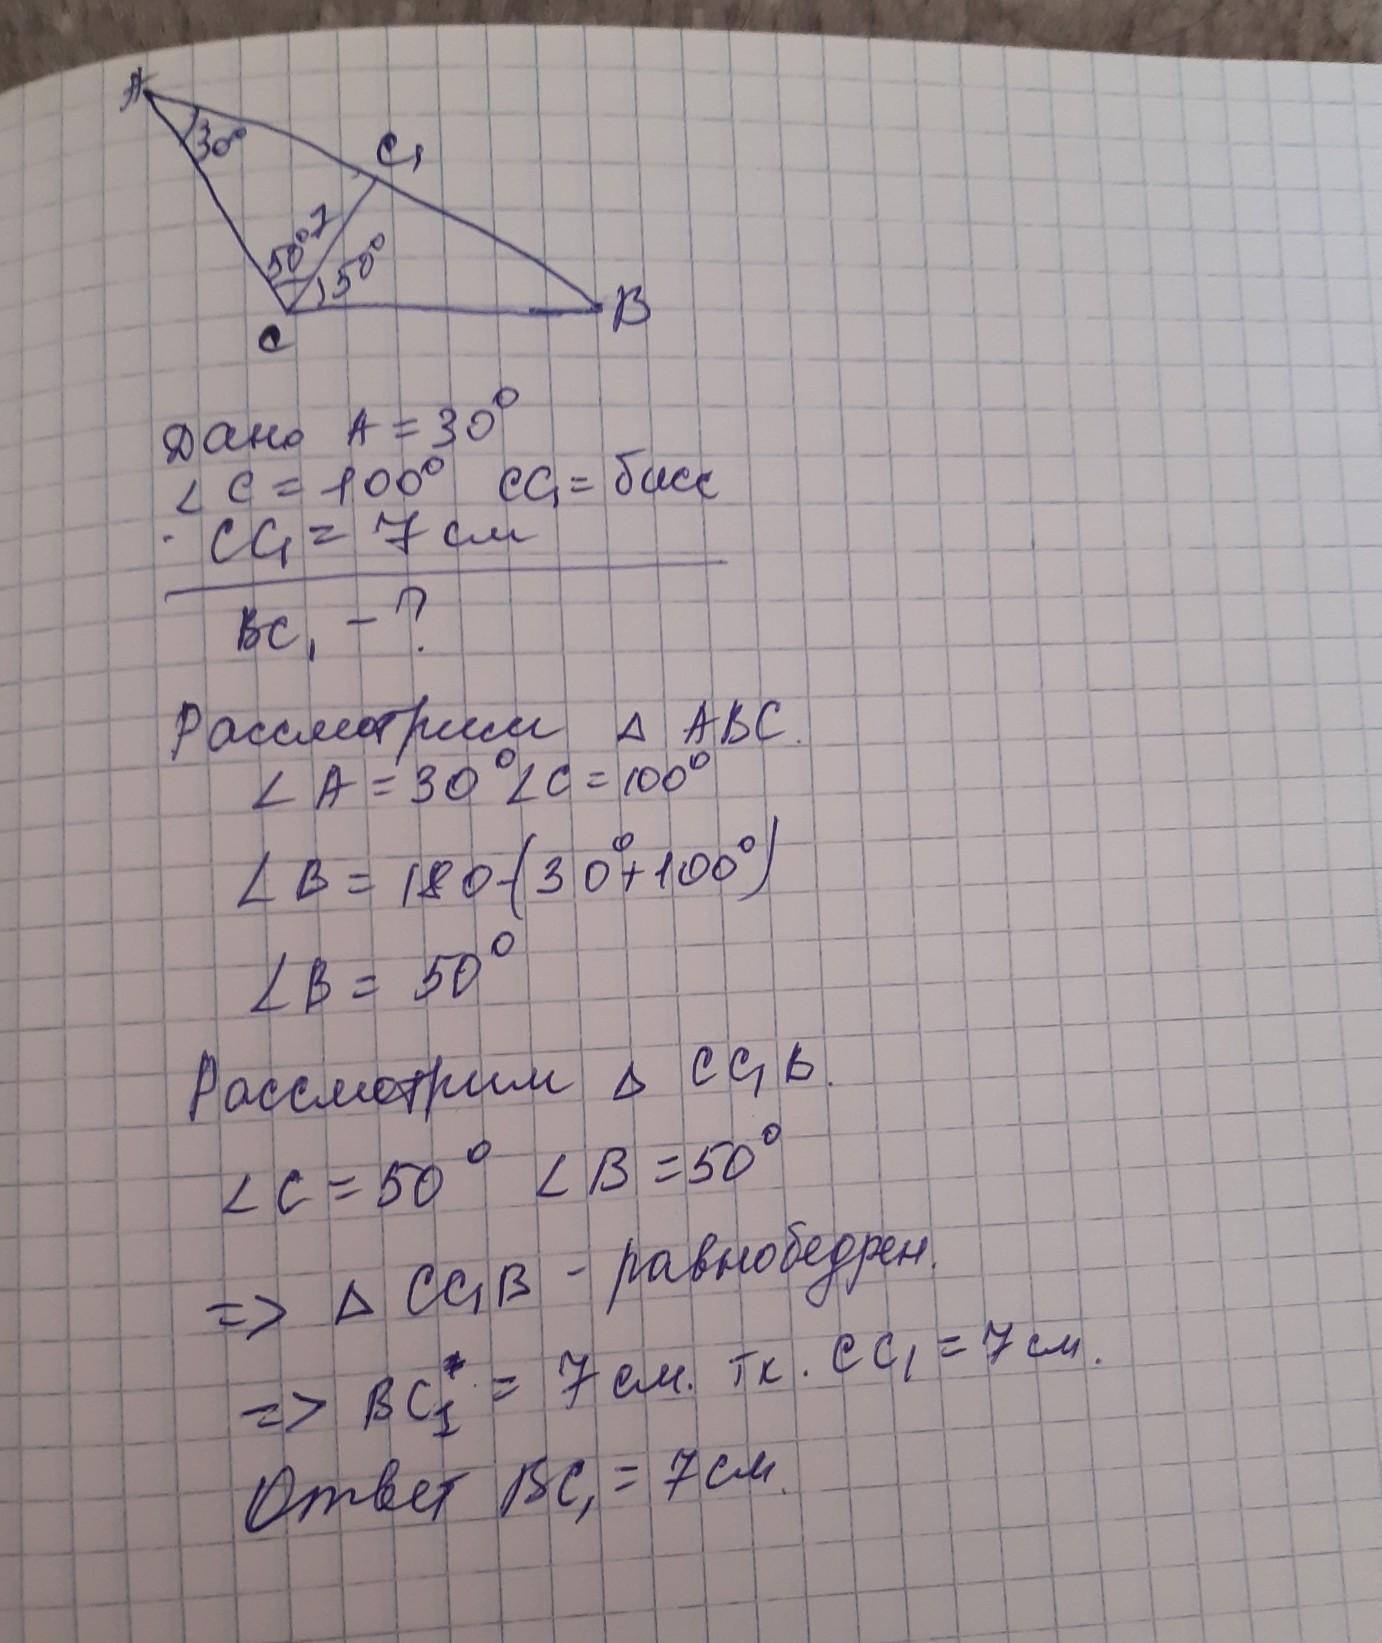 A
30°
C₁
7
50°
50°
B
C
Дано A = 30°
∠ C = 100° CC₁ = бисс
CC₁ = 7 см
BC₁ - ?
Рассмотрим △ ABC.
∠ A = 30° ∠ C = 100°
∠ B = 180-(30°+100°)
∠ B = 50°
Рассмотрим △ CC₁B.
∠ C = 50° ∠ B = 50°
=> △ CC₁B - равнобедрен.
=> BC₁ = 7 см. тк. CC₁ = 7 см.
Ответ BC₁ = 7 см.